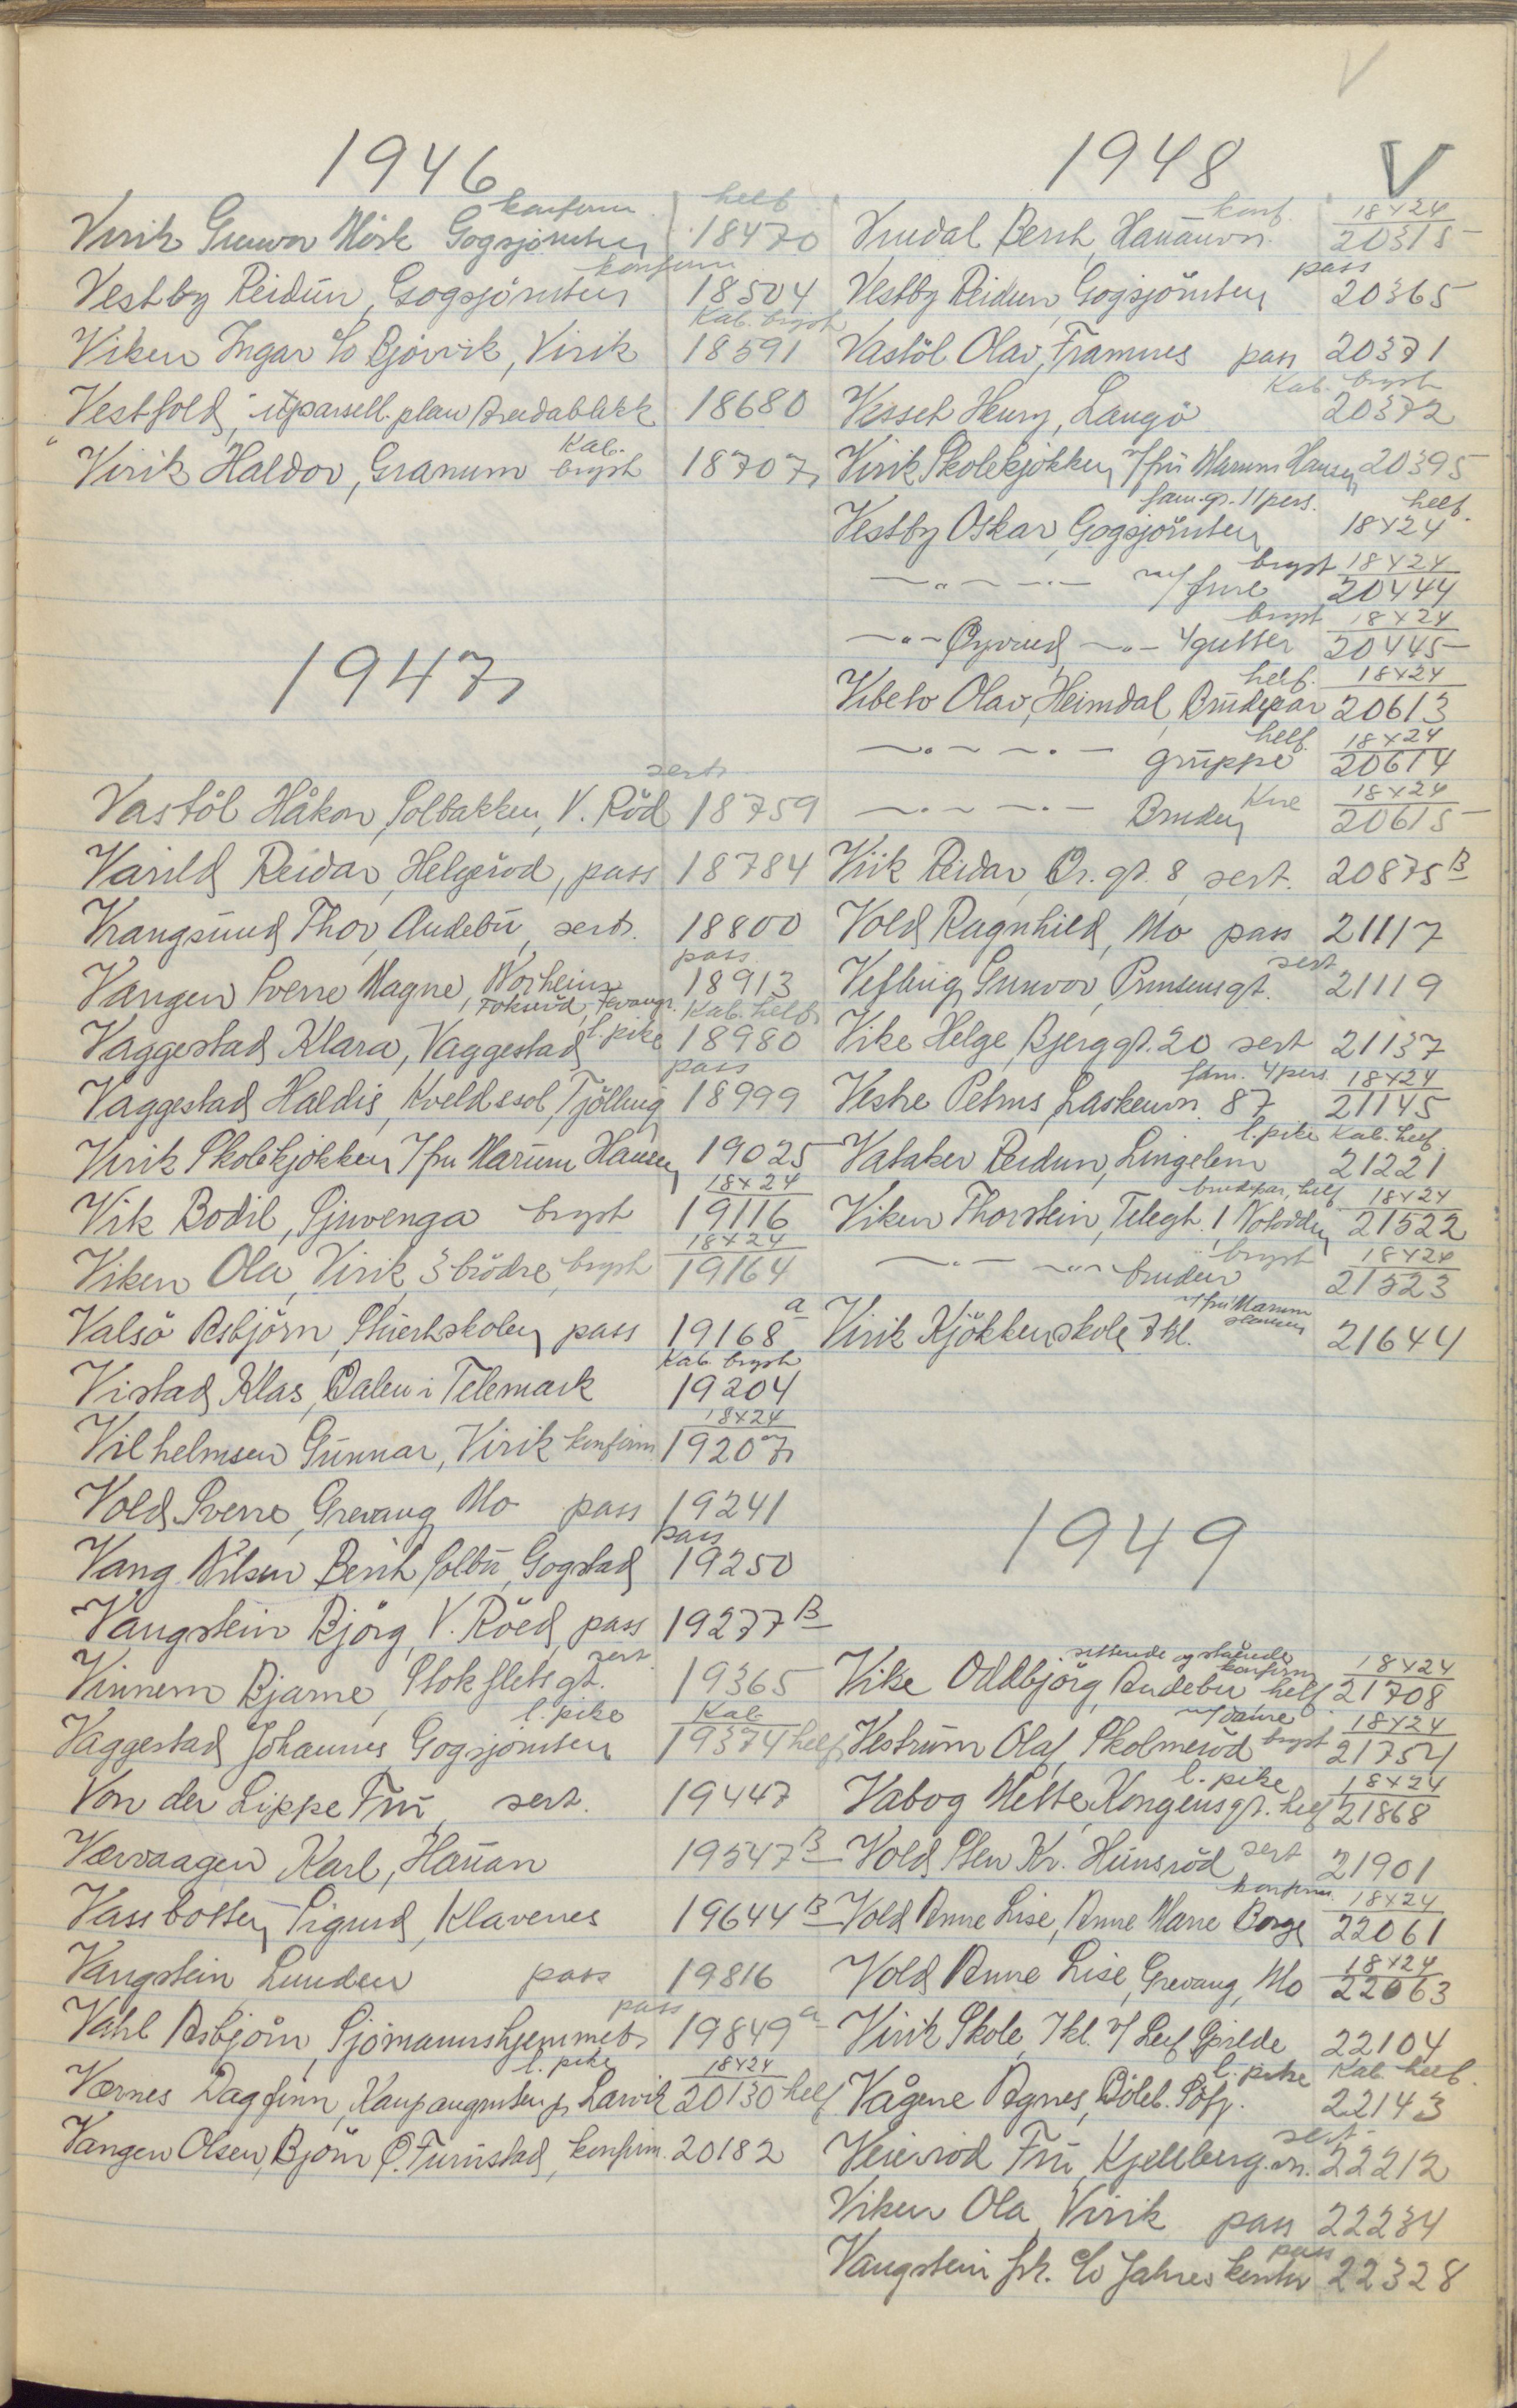 V
1946
Virik Gunvor Mörk Gogsjordet konfirm. helf. 18470
Vestby Reidun, Gogsjördet konfirm 18504
Viken Ingar c/o Bjørvik, Virik Kab. bryst 18591
Vestfold, utparsell. plan Bredablikk 18680
Virik Haldor, Granum Kab. bryst 18707
1947
Vastöl Håkon, Solbakken, V. Röd sert. 18759
Varild Reidar, Helgeröd, pass 18784
Vrangsund Thor, Andebu, sert. 18800
Vangen Sverre Magne, Norheim pass 18913
Vaggestad Klara, Vaggestad l. pike Kab. helf. 18980
Vaggestad Haldis, Kveldssol, Tjölling pass 18999
Virik Skolekjökken v/ fru Marum Hansen 19025
Vik Bodil, Sjuvenga bryst 18x24 19116
Viken Ola, Virik, 3 brödre, bryst 18x24 19164
Valsö Asbjörn, Stuertskolen pass 19168 a
Vistad Klas, Dalen i Telemark Kab. bryst 19204
Vilhelmsen Gunnar, Virik konfirm. 18x24 19207
Vold Sverre, Grevang Mo pass 19241
Vang Nilsen Berit Solbu, Gogstad pass 19250
Vangstein Bjørg, V. Röed, pass 19277 B
Vinnem Bjarne, Stokfletsgt. sert. 19365
Vaggestad Johannes Gogsjordet l. pike Kab 19374 helf.
Von der Lippe Fru, sert. 19447
Værvaagen Karl, Hauan 19547 B
Vassbotten Sigurd, Klavenes 19644 B
Vangstein Lunden pass 19816
Vahl Asbjörn, Sjömannshjemmet pass 19849 a
Værnes Dagfinn, Larvik l. pike 18x24 20130 helf.
Vangen Olsen, Bjørn Ø. Furustad, konfirm. 20182
1948 V
Vindal Berit, Hauanvn. konf. 18x24 20315
Vestby Reidun, Gogsjördet pass 20365
Vastöl Olav, Framnes pass 20371
Vesset Henry, Langö Kab. bryst 20372
Virik Skolekjökken v/ fru Marum Hansen 20395
Vestby Oskar, Gogsjordet fam. gr. 11 pers. helf. 18x24
—"— —"— m/ frue bryst 18x24 20444
—"— Øyvind —"— 4 gutter bryst 18x24 20445
Vibeto Olav, Heimdal, Brudepar helf. 18x24 20613
—"— —"— gruppe helf. 18x24 20614
—"— —"— Bruden Kne 18x24 20615
Viik Reidar, Dr. gt. 8 sert. 20875 B
Vold Ragnhild, Mo pass 21117
Vefling Gunvor, Prinsensgt. sert 21119
Vike Helge, Bjerggt. 20 sert 21137
Vestre Petrus, Laskenvn. 87 fam. 4 pers. 18x24 21145
Vataker Reidun, Lingelem l. pike Kab. helf. 21221
Viken Thorstein, Telegt. 1 Notodden brudepar, helf. 18x24 21522
—"— —"— bruden bryst 18x24 21523
Virik Kjökkenskole 7 kl. v/ fru Marum Hansen 21644
1949
Vike Oddbjörg, Andebu helf. sittende og stående konfirm 18x24 21708
Vestrum Olaf, Skolmeröd m/ datre bryst 18x24 21754
Vabog Mette, Kongensgt. helf l. pike 18x24 21868
Vold Sten Kr. Hunsröd sert 21901
Vold Anne Lise, Anne Marie Borge konfirm. 18x24 22061
Vold Anne Lise, Grevang, Mo 18x24 22063
Virik Skole, 7 kl. v/ Leif Gjilde 22104
Vågene Agnes, l. pike Kab. helf. 22143
Veieröd Fru, Kjellberg.vn. sert. 22212
Viken Ola, Virik pass 22234
Vangstein frk. c/o Jahres kontor pass 22328